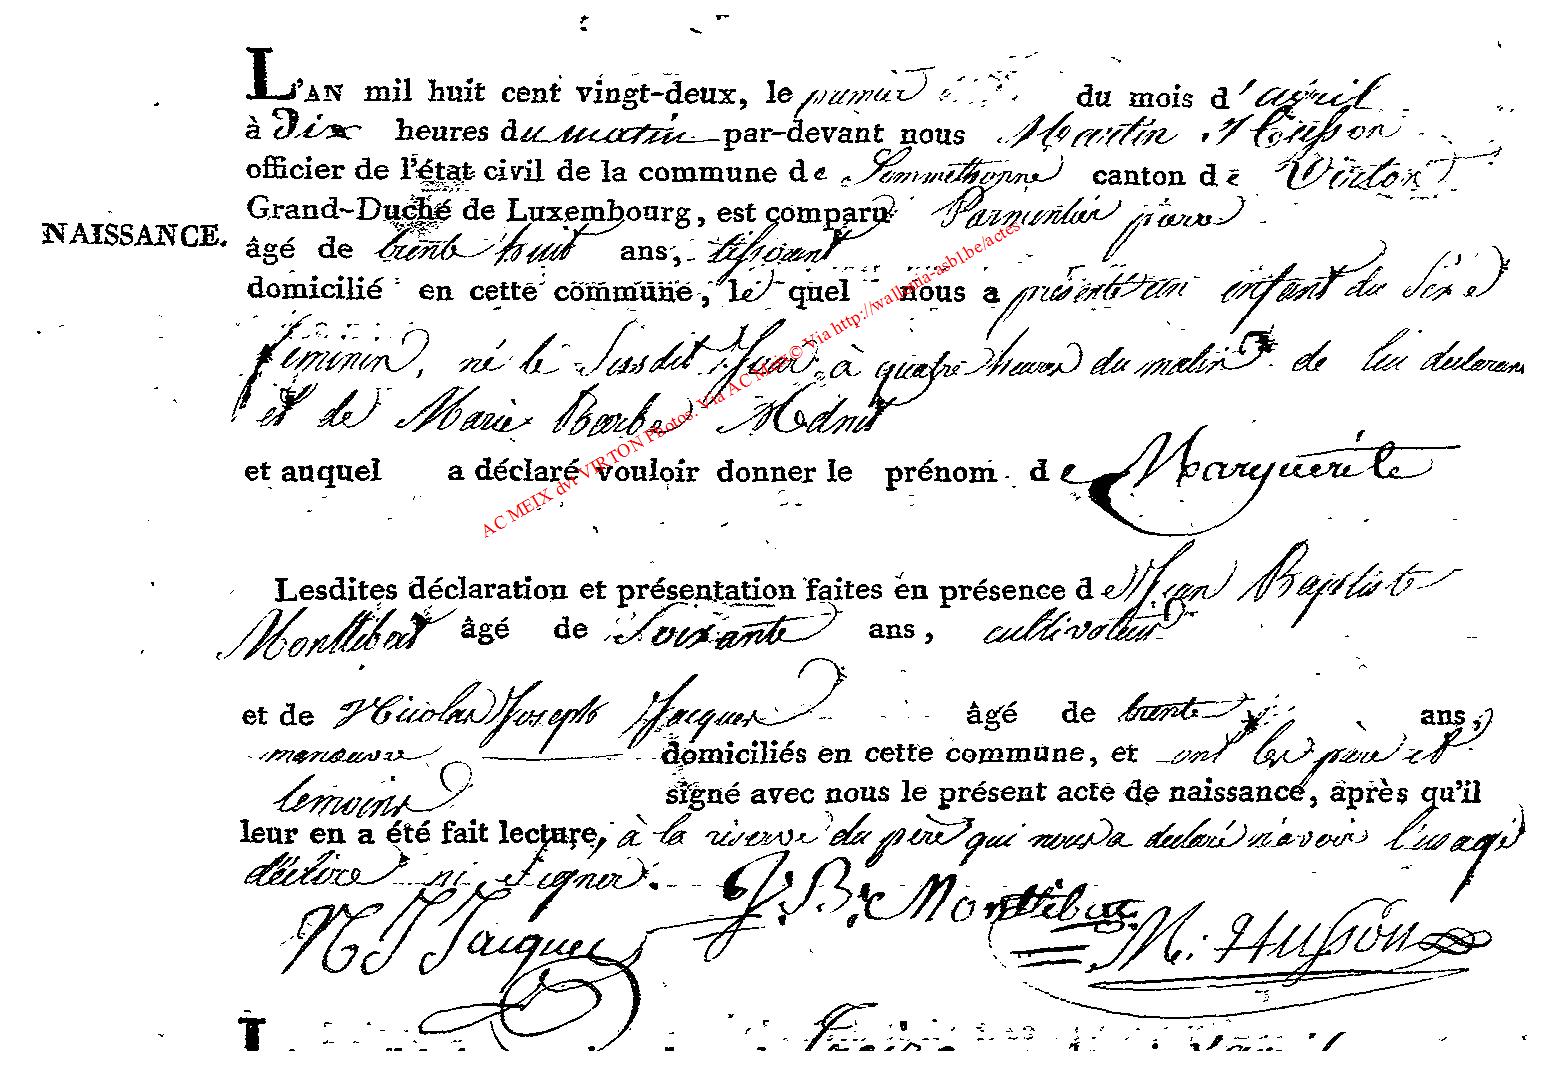 L'AN mil huit cent vingt-deux, le premier du mois d'avril
à Dix heures du matin par-devant nous Martin Husson
officier de l'état civil de la commune de Sommethonne canton de Virton
Grand-Duché de Luxembourg, est comparu Parmentier pierre
NAISSANCE.
âgé de trente huit ans, tisserant
domicilié en cette commune, le quel nous a présenté un enfant du Sexe
féminin, né le Susdit Jour à quatre heures du matin de lui declarant
et de Marie Barbe
et auquel a déclaré vouloir donner le prénom de Marguerite
Lesdites déclaration et présentation faites en présence de Jean Baptiste
Montlibert âgé de Soixante ans, cultivateur
et de Nicolas Joseph Jacques âgé de trente ans,
manouvre domiciliés en cette commune, et ont les père et
temoins signé avec nous le présent acte de naissance, après qu'il
leur en a été fait lecture, à la reserve du père qui nous a declaré n'avoir l'usage
d'écrire ni signer.
N J Jacques J. B. Montlibert M: Husson
AC MEIX dvt VIRTON Photos. Via AC Meix© Via http://wallonia-asbl.be/actes